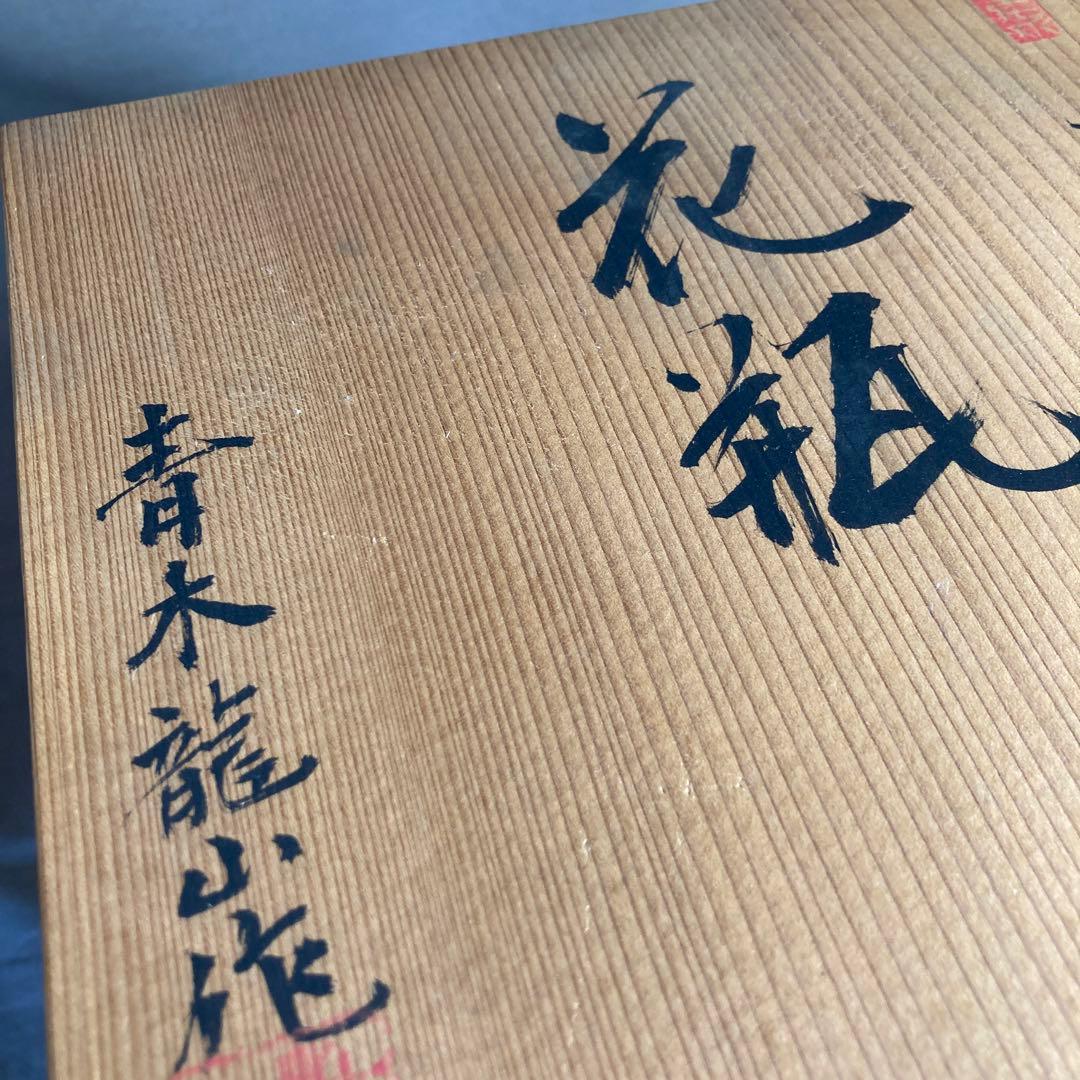 花瓶
青木龍山作